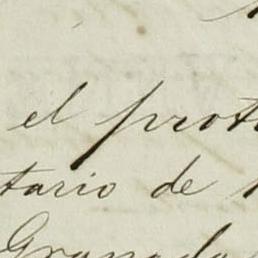 el prot
tario de
Granada